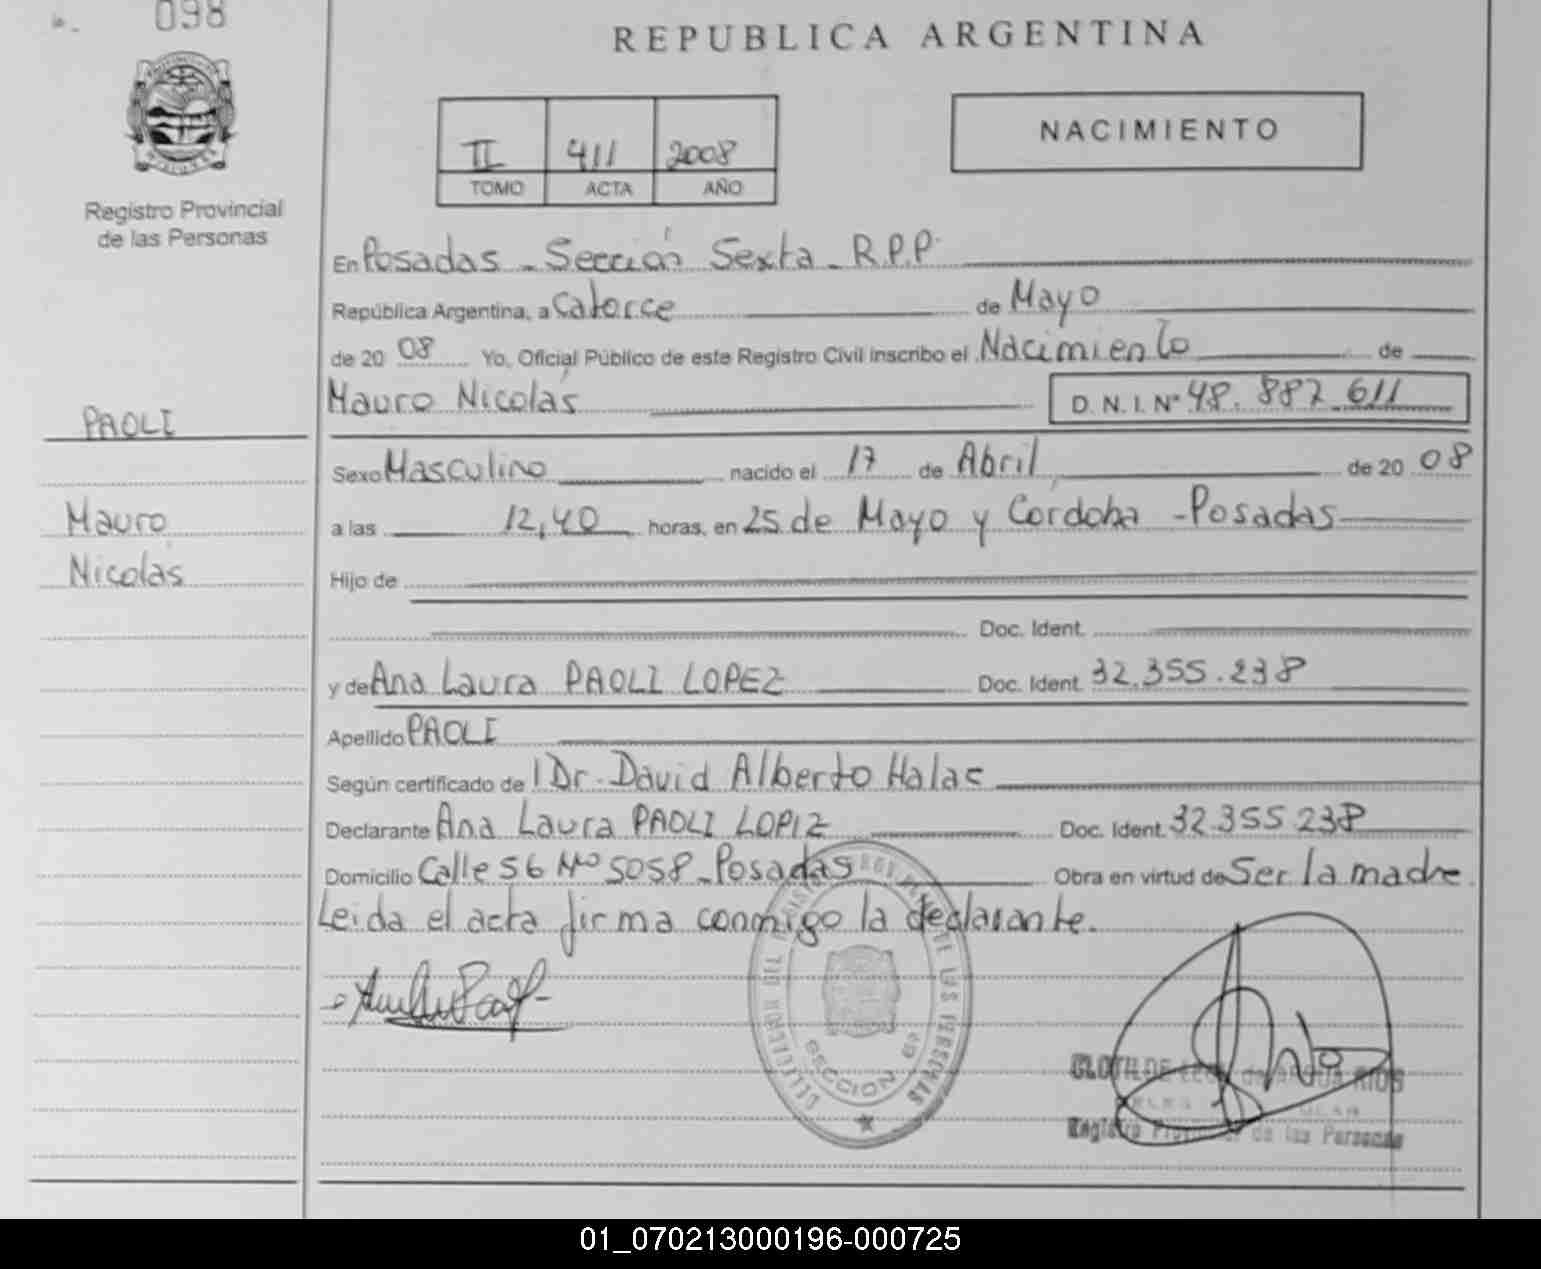 098
REPUBLICA ARGENTINA
NACIMIENTO
II 411 2008
TOMO ACTA AÑO
Registro Provincial
de las Personas
En Posadas - Sección Sexta - R.P.P.
República Argentina, a Catorce de Mayo
de 20 08 Yo, Oficial Público de este Registro Civil inscribo el Nacimiento de
Mauro Nicolás D.N.I. Nº 48.887.611
PAOLI
Sexo Masculino nacido el 17 de Abril de 20 08
Mauro
a las 12,40 horas, en 25 de Mayo y Córdoba - Posadas
Nicolás
Hijo de
Doc. Ident.
y de Ana Laura PAOLI LOPEZ Doc. Ident. 32.355.238
Apellido PAOLI
Según certificado de Dr. David Alberto Halac
Declarante Ana Laura PAOLI LOPEZ Doc. Ident. 32.355.238
Domicilio Calle 56 Nº 5058 - Posadas Obra en virtud de Ser la madre
Leida el acta firma conmigo la declarante.
DELEGACION DEL REGISTRO PROV. DE LAS PERSONAS
SECCION 6ª
CLOTILDE RIOS
Registro Provincial de las Personas
01_070213000196-000725